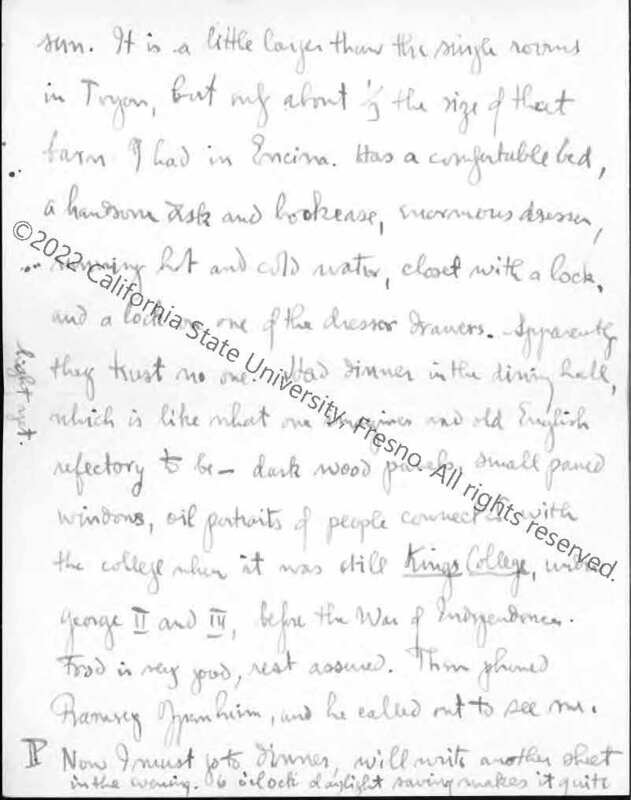 sun. It is a little larger than the single rooms
in Toyon, but only about 1/3 the size of that
barn I had in Encina. Has a comfortable bed,
a handsome desk and bookcase, enormous dresser,
running hot and cold water, closet with a lock,
and a lock on one of the dresser drawers. Apparently
they trust no one. Had dinner in the dining hall,
which is like what one imagines an old English
refectory to be — dark wood panels, small paned
windows, oil portraits of people connected with
the college when it was still Kings College, under
George II and III, before the War of Independence.
Food is very good, rest assured. Then phoned
Ramsey Oppenheim, and he called out to see me.
Now I must go to dinner, will write another sheet
in the evening. 6 o'clock daylight saving makes it quite
light yet.
©2022 California State University, Fresno. All rights reserved.